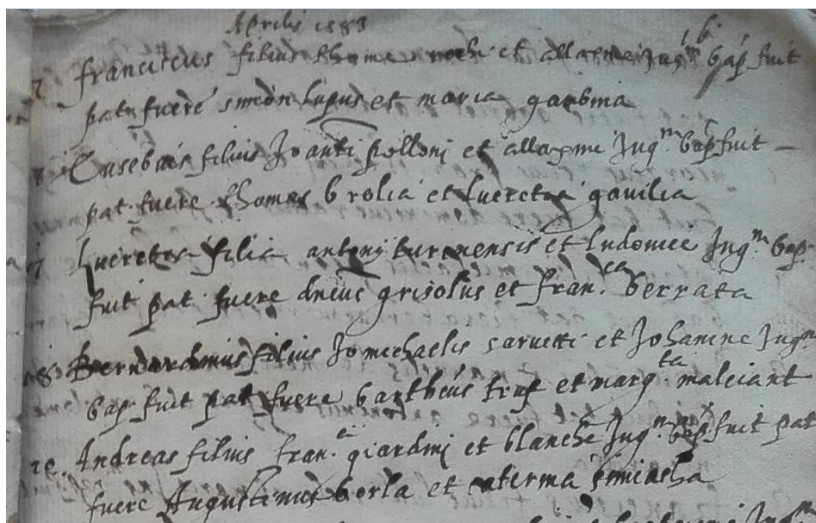 Aprilis 1583
franciscus filius thome et Jug.m bap fuit
pat fuere simon lupus et maria gaubina
Eusebius filius Jo anti polloni et allaxine Jug.m bap fuit
pat. fuere thomas brolia et lucretia gavilia
lucretia filia antonij turonensis et ludovice Jug.m bap.
fuit pat fuere et fran.ca berrata
Bernardinus filius Jo michaelis sarvetti et Johanine Jug.m
bap fuit pat fuere bartheus et marg.ta
Andreas filius fran. giardini et blanche Jug.m bap fuit pat
fuere Augustinus borla et caterina